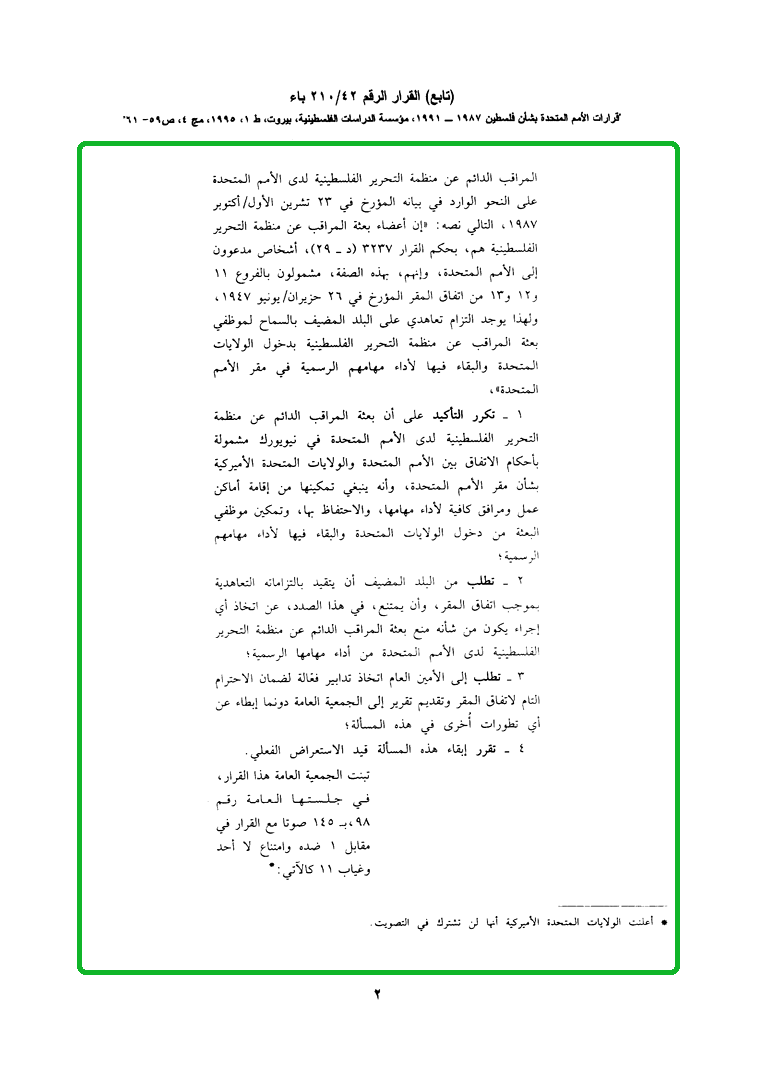 (تابع) القرار الرقم ٢١٠/٤٢ باء
"قرارات الأمم المتحدة بشأن فلسطين ١٩٨٧ ــ ١٩٩١، مؤسسة الدراسات الفلسطينية، بيروت، ط ١، ١٩٩٥، مج ٤، ص٥٩- ٦١"
المراقب الدائم عن منظمة التحرير الفلسطينية لدى الأمم المتحدة
على النحو الوارد في بيانه المؤرخ في ٢٣ تشرين الأول/أكتوبر
١٩٨٧، التالي نصه: «إن أعضاء بعثة المراقب عن منظمة التحرير
الفلسطينية هم، بحكم القرار ٣٢٣٧ (د ـ ٢٩)، أشخاص مدعوون
إلى الأمم المتحدة، وإنهم، بهذه الصفة، مشمولون بالفروع ١١
و١٢ و١٣ من اتفاق المقر المؤرخ في ٢٦ حزيران/يونيو ١٩٤٧،
ولهذا يوجد التزام تعاهدي على البلد المضيف بالسماح لموظفي
بعثة المراقب عن منظمة التحرير الفلسطينية بدخول الولايات
المتحدة والبقاء فيها لأداء مهامهم الرسمية في مقر الأمم
المتحدة»،
١ ـ تكرر التأكيد على أن بعثة المراقب الدائم عن منظمة
التحرير الفلسطينية لدى الأمم المتحدة في نيويورك مشمولة
بأحكام الاتفاق بين الأمم المتحدة والولايات المتحدة الأميركية
بشأن مقر الأمم المتحدة، وأنه ينبغي تمكينها من إقامة أماكن
عمل ومرافق كافية لأداء مهامها، والاحتفاظ بها، وتمكين موظفي
البعثة من دخول الولايات المتحدة والبقاء فيها لأداء مهامهم
الرسمية؛
٢ ـ تطلب من البلد المضيف أن يتقيد بالتزاماته التعاهدية
بموجب اتفاق المقر، وأن يمتنع، في هذا الصدد، عن اتخاذ أي
إجراء يكون من شأنه منع بعثة المراقب الدائم عن منظمة التحرير
الفلسطينية لدى الأمم المتحدة من أداء مهامها الرسمية؛
٣ ـ تطلب إلى الأمين العام اتخاذ تدابير فعّالة لضمان الاحترام
التام لاتفاق المقر وتقديم تقرير إلى الجمعية العامة دونما إبطاء عن
أي تطورات أُخرى في هذه المسألة؛
٤ ـ تقرر إبقاء هذه المسألة قيد الاستعراض الفعلي.
تبنت الجمعية العامة هذا القرار،
في جلستها العامة رقم
٩٨، بـ ١٤٥ صوتا مع القرار في
مقابل ١ ضده وامتناع لا أحد
وغياب ١١ كالآتي:*
* أعلنت الولايات المتحدة الأميركية أنها لن تشترك في التصويت.
٢